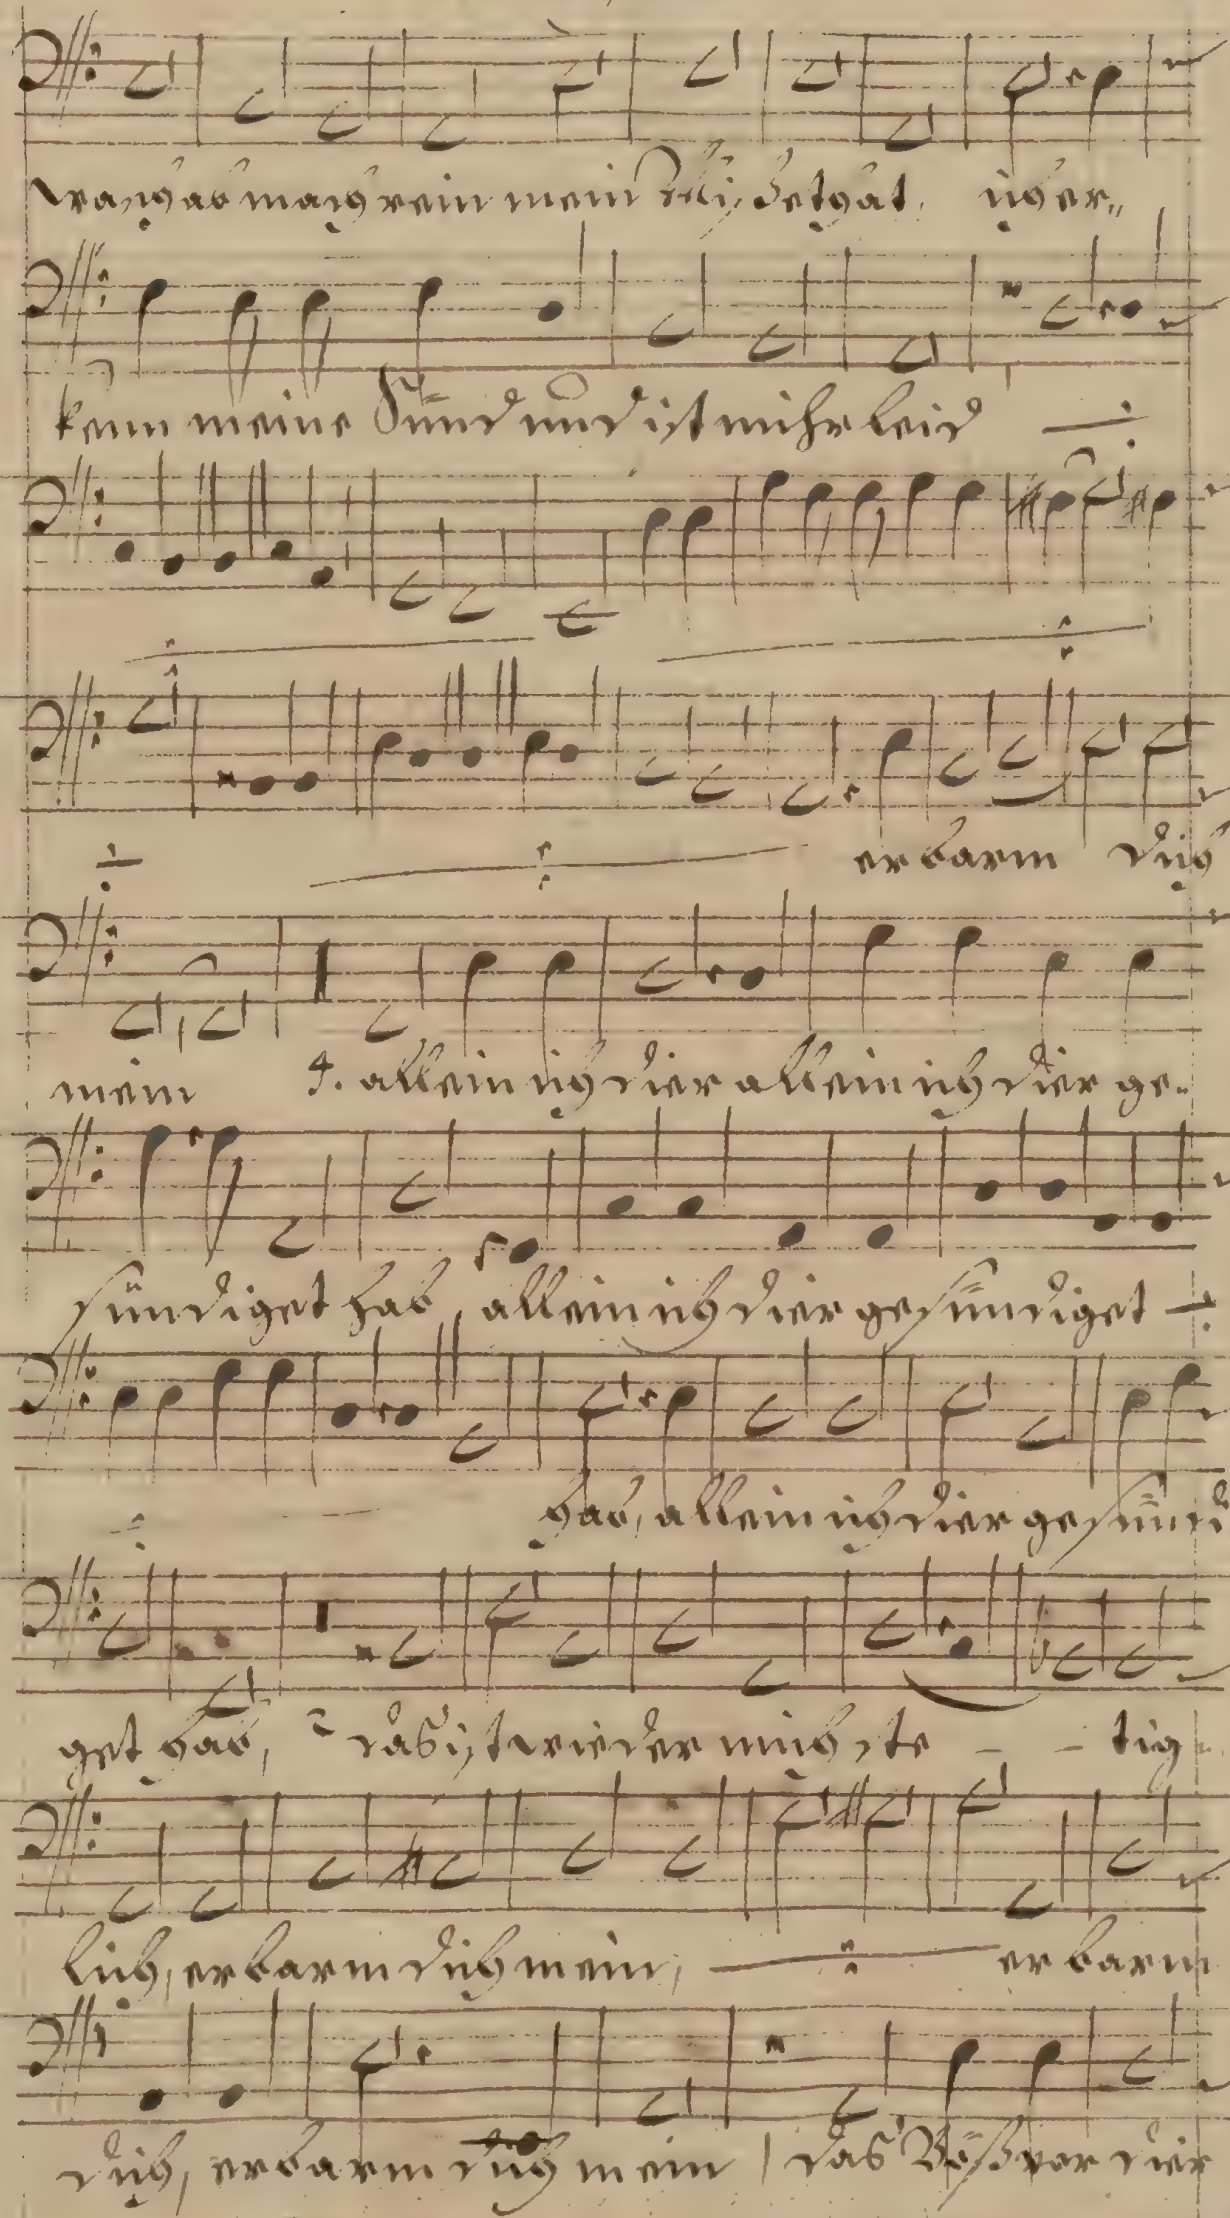 wasch ab mach rein mein Missethat, ich er„
kenn meine Sünd und ist mihr leid ÷
erbarm dich
mein 4. allein ich dier allein ich dier ge„
sündiget hab, allein ich dier gesündiget ÷
hab, allein ich dier gesündi
get hab, das ist wieder mich ste – – tig
lich, erbarm dich mein, ÷ erbarm
dich, erbarm dich mein, das Böß vor dier